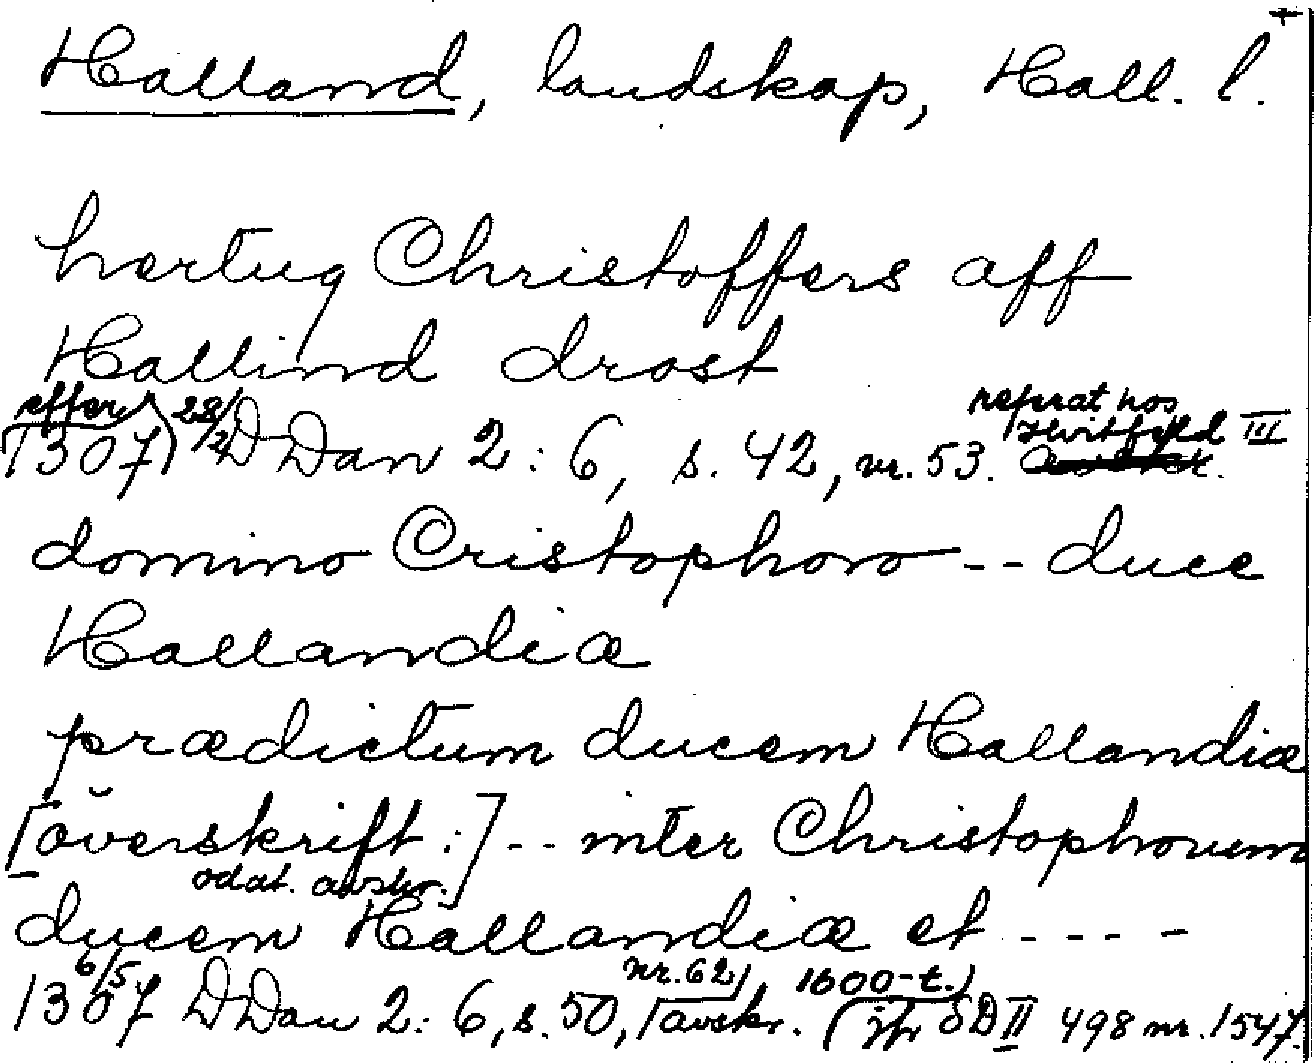 Halland, landskap, Hall. l.
hertug Christoffers aff
Hallind drost
(efter 28/2
1307) DDan 2:6, s. 42, nr. 53. referat hos Hvitfeld III
domino Cristophoro -- duce
Hallandiæ
prædictum ducem Hallandiæ
[överskrift:] -- inter Christophorum
odat. avskr.
ducem Hallandiæ et ----
6/5 nr. 62, 1600-t.
1307 DDan 2:6, s. 50, avskr. (jfr SD II 498 nr. 1547.